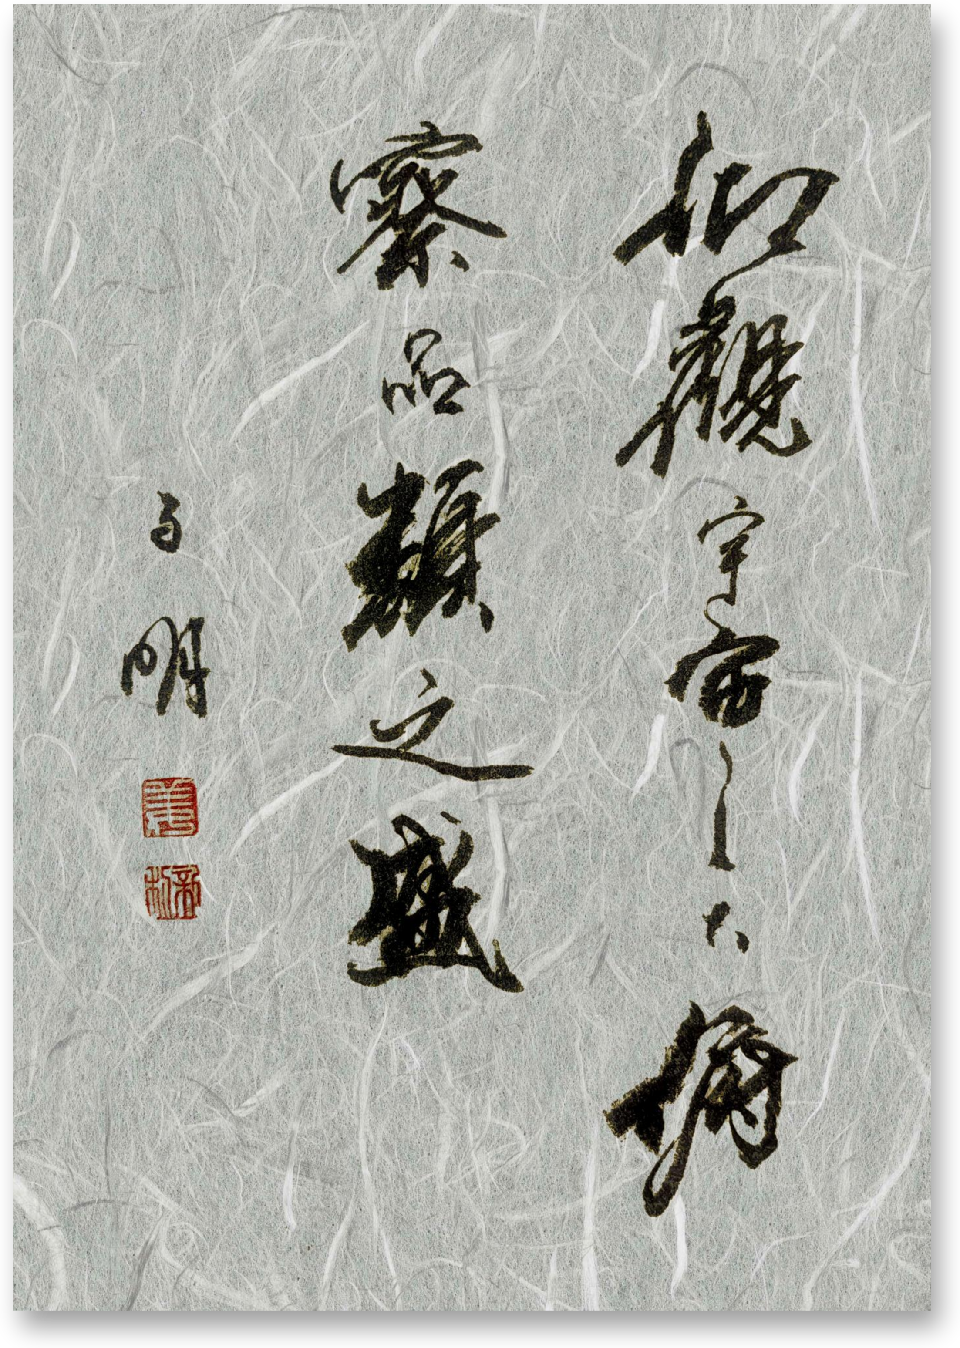 仰觀宇宙之大俯
察品類之盛
明